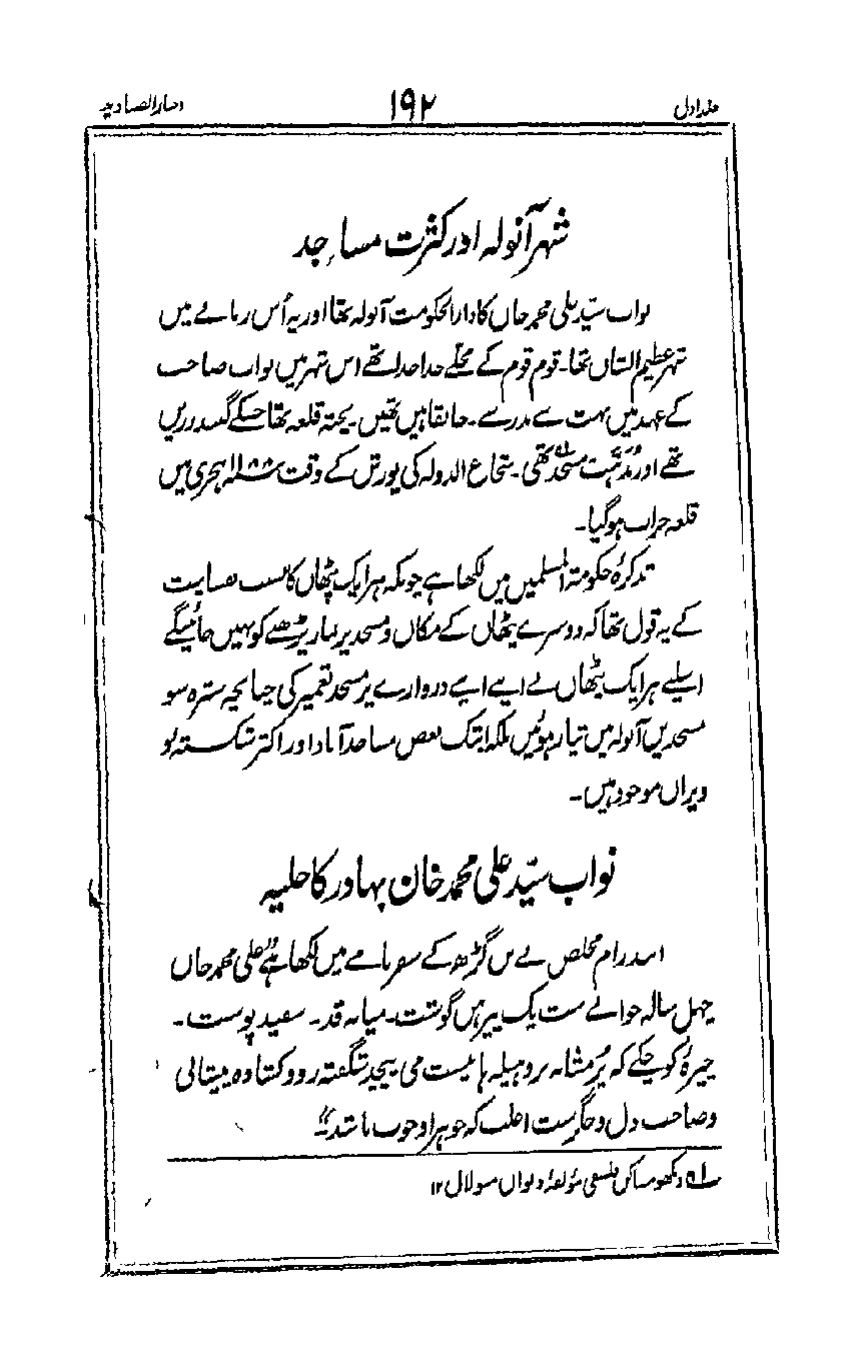 جلد اول ۱۹۲ اخبار الصنادید
شہر آنولہ اور کثرت مساجد
نواب سیّد علی محمد خاں کا دار الحکومت آنولہ تھا اور یہ اُس زمانے میں
شہر عظیم الشان تھا۔ قوم قوم کے محلّے جدا جدا تھے اس شہر میں نواب صاحب
کے عہد میں بہت سے مدرسے۔ خانقاہیں تھیں۔ پختہ قلعہ تھا جسکے گنبد زریں
تھے اور مسجد تھی۔ شجاع الدولہ کی یورش کے وقت ۱۱۸۸ ہجری میں
قلعہ خراب ہوگیا۔
تذکرۂ حکومۃ المسلمین میں لکھا ہے چونکہ ہر ایک پٹھان کا بسبب نفسانیت
کے یہ قول تھا کہ دوسرے پٹھان کے مکان و مسجد پر نماز پڑھنے کو نہیں جائینگے
اسلیے ہر ایک پٹھان نے اپنے اپنے دروازے پر مسجد تعمیر کی چنانچہ سترہ سو
مسجدیں آنولہ میں تیار ہوئیں بلکہ ابتک بعض مساجد آباد اور اکثر شکستہ و
ویران موجود ہیں۔
نواب سیّد علی محمد خان بہادر کا حلیہ
انند رام مخلص نے بن گڑھ کے سفرنامے میں لکھا ہے "علی محمد خاں
چہل سالہ جوانے ست یک پیرہن گوشت۔ میانہ قد۔ سفید پوست۔
چیرۂ کوچکے کہ پُر مشابہ بروہیلہ ہا نیست می پیچد شگفتہ رو و کشادہ پیشانی
و صاحب دل و جگرست اغلب کہ جوہر او خوب باشد"
لہ دیکھو مساکن فلسفی مؤلفۂ دیوان مولالال ۱۲